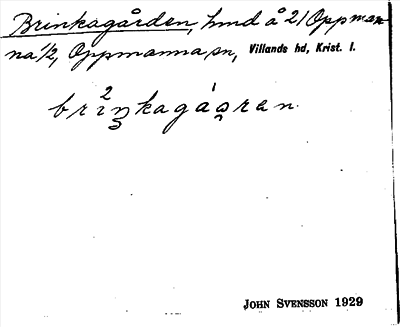 Brinkagården, hmd å 21 Oppman-
na 1/2, Oppmanna sn, Villands hd, Krist. l.
JOHN SVENSSON 1929